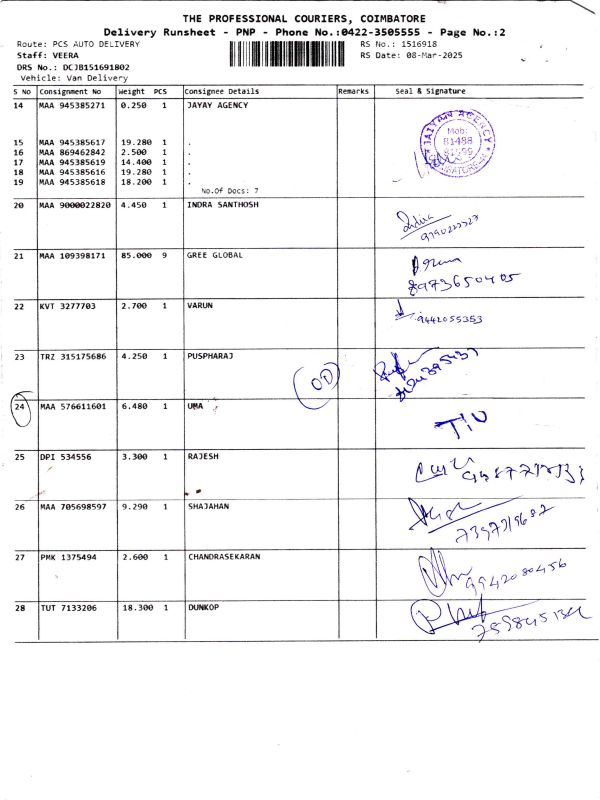 THE PROFESSIONAL COURIERS, COIMBATORE
Delivery Runsheet - PNP - Phone No.:0422-3505555 - Page No.:2
Route: PCS AUTO DELIVERY RS No.: 1516918
Staff: VEERA RS Date: 08-Mar-2025
DRS No.: DCJB151691802
Vehicle: Van Delivery
S No Consignment No Weight PCS Consignee Details Remarks Seal & Signature
14 MAA 945385271 0.250 1 JAYAY AGENCY
Mob:
81488
15 MAA 945385617 19.280 1 .
16 MAA 869462842 2.500 1 .
17 MAA 945385619 14.400 1 .
18 MAA 945385616 19.280 1 .
19 MAA 945385618 18.200 1 .
No.Of Docs: 7
20 MAA 9000022820 4.450 1 INDRA SANTHOSH
21 MAA 109398171 85.000 9 GREE GLOBAL
8973650405
22 KVT 3277703 2.700 1 VARUN
9442055353
23 TRZ 315175686 4.250 1 PUSPHARAJ
OD
24 MAA 576611601 6.480 1 UMA
25 DPI 534556 3.300 1 RAJESH
26 MAA 705698597 9.290 1 SHAJAHAN
27 PMK 1375494 2.600 1 CHANDRASEKARAN
9942080456
28 TUT 7133206 18.300 1 DUNKOP